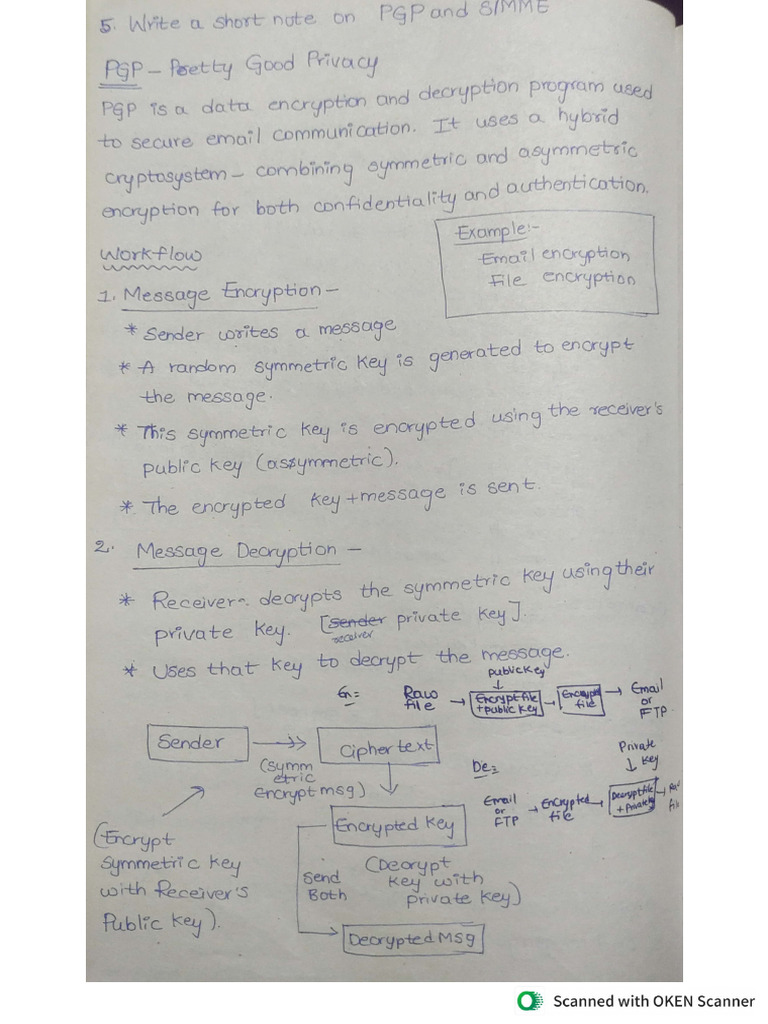 5. Write a short note on PGP and S/MME
PGP - Pretty Good Privacy
PGP is a data encryption and decryption program used
to secure email communication. It uses a hybrid
cryptosystem - combining symmetric and asymmetric
encryption for both confidentiality and authentication.
Example:-
Email encryption
File encryption
Workflow
1. Message Encryption -
* Sender writes a message
* A random symmetric key is generated to encrypt
the message.
* This symmetric key is encrypted using the receiver's
public key (assymmetric).
* The encrypted key + message is sent.
2. Message Decryption -
* Receiver - decrypts the symmetric key using their
private key. [sender private key].
receiver
* Uses that key to decrypt the message.
Public key
En: Raw file → Encrypt file + public key → Encrypt file → Email or FTP.
Sender → (Symmetric Encrypt msg) Cipher text
Private key
De: Email or FTP → Encrypted file → Decrypt file + Private key →
Encrypted key
(Encrypt
Symmetric key
with Receiver's
Public key).
Send
Both
(Decrypt
key with
private key)
Decrypted Msg
Scanned with OKEN Scanner